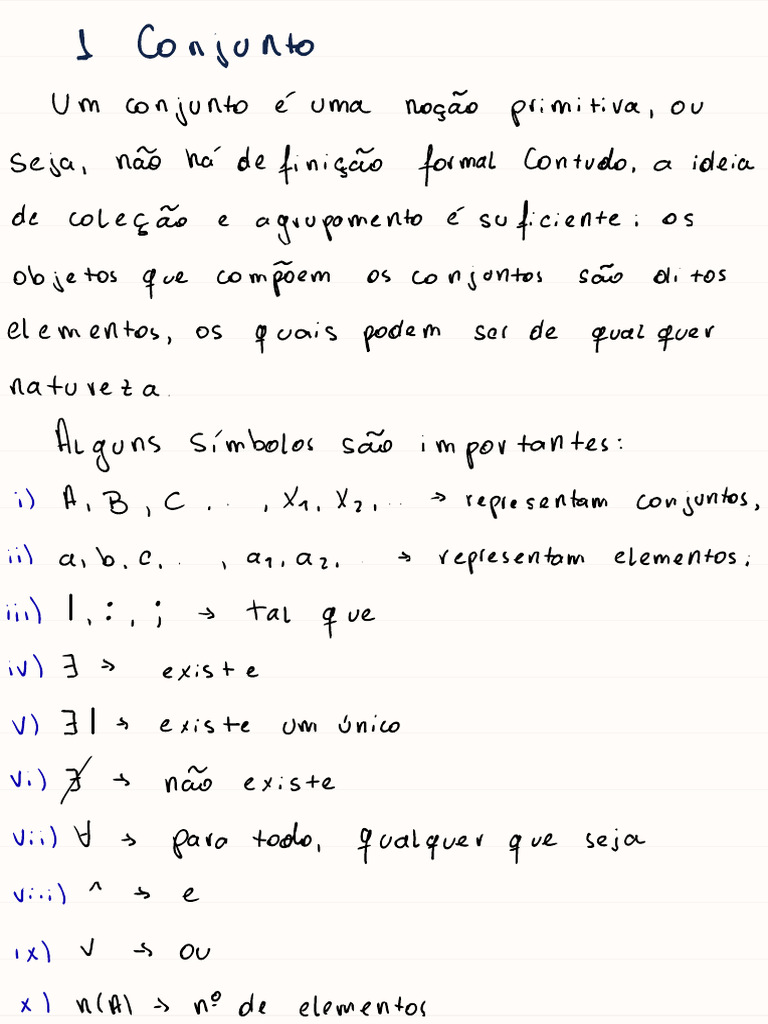 1 Conjunto
Um conjunto é uma noção primitiva, ou
seja, não há definição formal Contudo, a ideia
de coleção e agrupamento é suficiente; os
objetos que compõem os conjuntos são ditos
elementos, os quais podem ser de qualquer
natureza.
Alguns símbolos são importantes:
i) A, B, C ..., X₁, X₂, ... → representam conjuntos,
ii) a, b, c, ..., a₁, a₂, ... → representam elementos;
iii) |, :, ; → tal que
iv) ∃ → existe
v) ∃| → existe um único
vi) ∄ → não existe
vii) ∀ → para todo, qualquer que seja
viii) ^ → e
ix) ∨ → ou
x) n(A) → nº de elementos